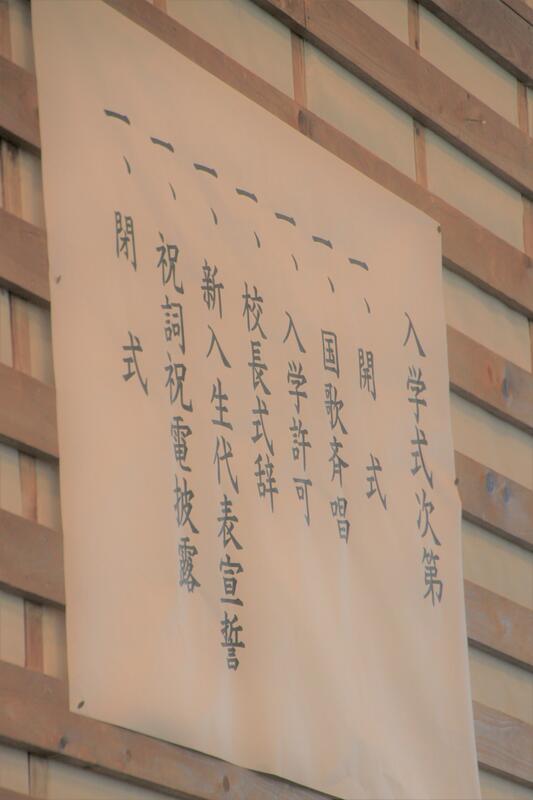 入学式次第
一、開式
一、国歌斉唱
一、入学許可
一、校長式辞
一、新入生代表宣誓
一、祝詞祝電披露
一、閉式